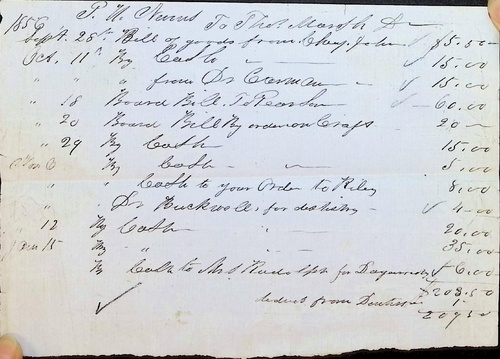 1856 P. H. To Thos. Marsh Dr
Sept. 28th Bill of goods from Chas. John 15.50
Oct. 11th By Cash 15.00
" " " from Dr 15.00
" 18 Board Bill To Pearson 60.00
" 20 Board Bill By order on Craft 20 -
" 29 By Cash 15.00
Nov 6 By Cash 5.00
" " Cash to your Order to Riley 8.00
" Dr Buckwell, for dentistry 4.00
" 12 By Cash 20.00
15 By " 35.00
By Cash to Mrs Rudolph for 6.00
$208.50
deduct from 1
207.50